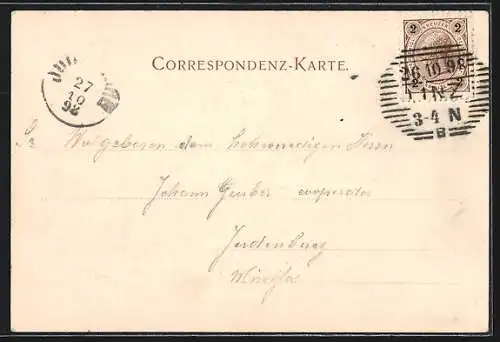 2 KREUZER 2
CORRESPONDENZ-KARTE.
26 10 98
LINZ
3-4 N
B
27
10
98
Sr Wolgeboren dem hochwürdigen Herrn
Johann Gruber cooperator
Judenburg